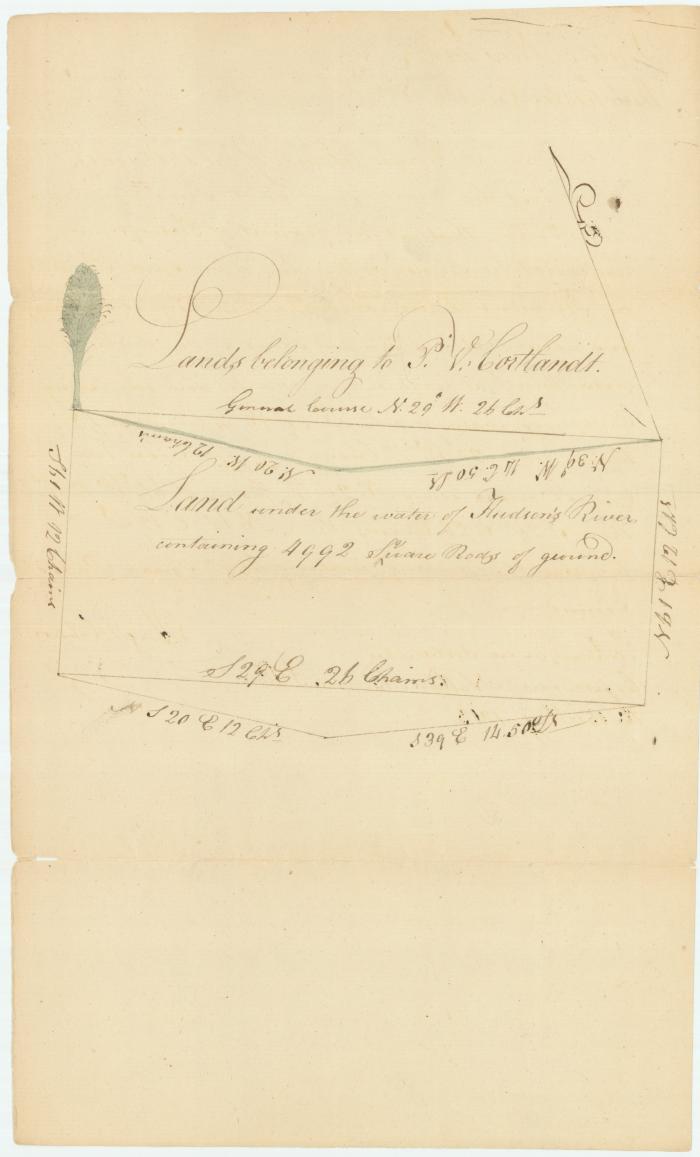 Lands belonging to P. V. Cortlandt.
General Course N. 29° W. 26 Chs
N. 20 W. 12 Chains
N. 39° W. 14 C. 50 Ls
Land under the water of Hudson's River
containing 4992 Square Rods of ground.
W 12 Chains
S 29 E 26 Chains.
S 20 E 12 Chs
S 39 E 14. 50 Ls